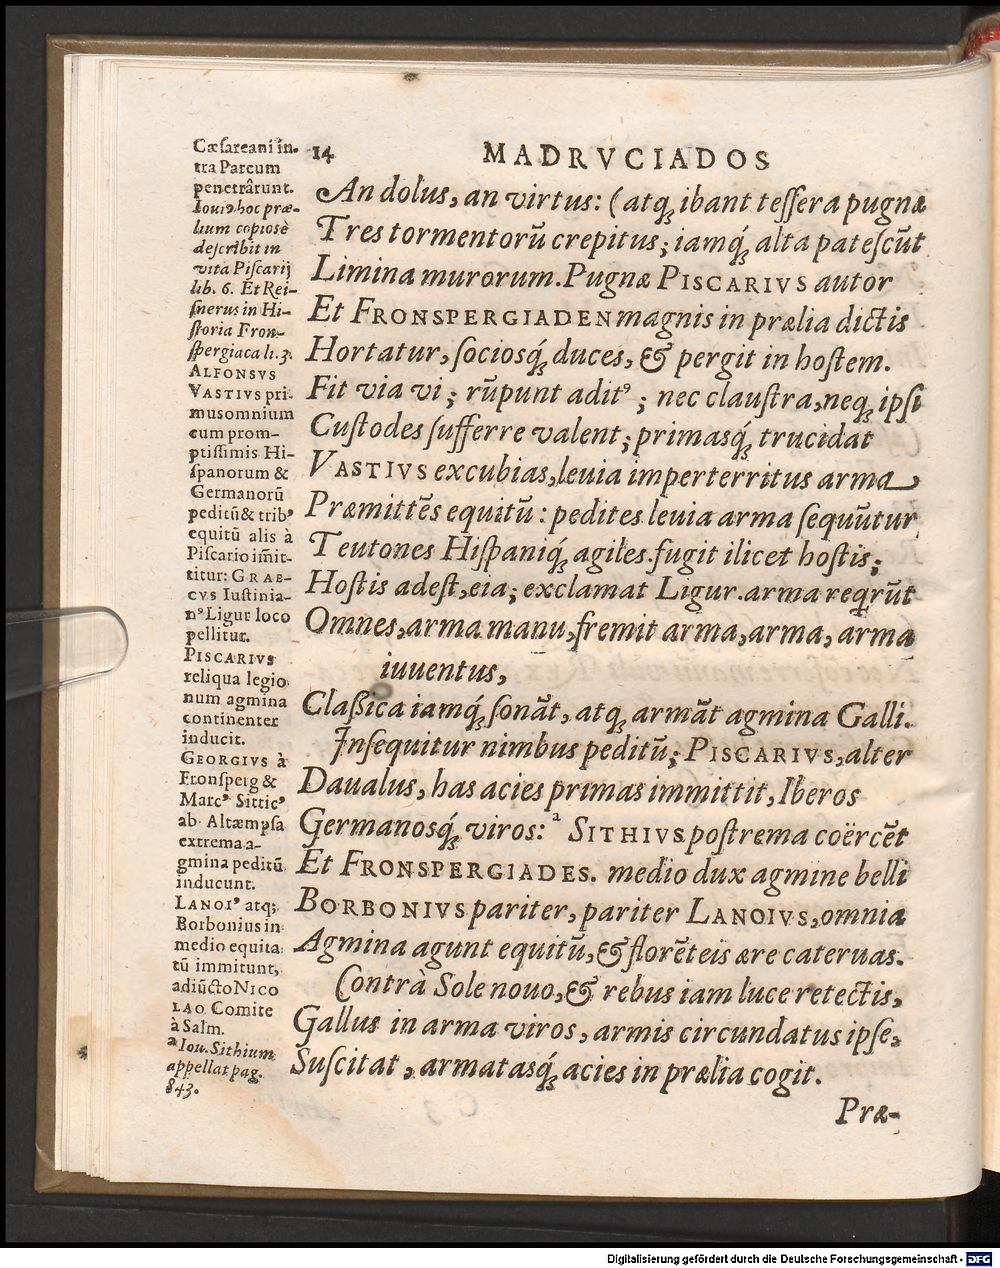 14 MADRVCIADOS
An dolus, an virtus: (atq́; ibant teſſera pugnæ
Tres tormentorũ crepitus; iamq́; alta pateſcũt
Limina murorum. Pugnæ PISCARIVS autor
Et FRONSPERGIADEN magnis in prælia dictis
Hortatur, ſociosq́; duces, & pergit in hoſtem.
Fit via vi; rũpunt adit⁹; nec clauſtra, neq; ipſi
Cuſtodes ſufferre valent; primasq́; trucidat
VASTIVS excubias, leuia imperterritus arma
Præmittẽs equitũ: pedites leuia arma ſequũtur
Teutones Hiſpaniq́; agiles. fugit ilicet hoſtis;
Hoſtis adeſt, eia; exclamat Ligur. arma reqrũt
Omnes, arma manu, fremit arma, arma, arma
iuuentus,
Claſſica iamq́; ſonãt, atq; armãt agmina Galli.
Inſequitur nimbus peditũ; PISCARIVS, alter
Daualus, has acies primas immittit, Iberos
Germanosq́; viros: ª SITHIVS poſtrema coërcẽt
Et FRONSPERGIADES. medio dux agmine belli
BORBONIVS pariter, pariter LANOIVS, omnia
Agmina agunt equitũ, & florẽteis ære cateruas.
Contrà Sole nouo, & rebus iam luce retectis,
Gallus in arma viros, armis circundatus ipſe,
Suſcitat, armatasq́; acies in prælia cogit.
Præ-
Cæſareani in-
tra Parcum
penetrârunt.
Iouiꝰ hoc præ-
lium copioſè
deſcribit in
vita Piſcarij
lib. 6. Et Rei-
ſnerus in Hi-
ſtoria Fron-
ſpergiaca li. 3.
ALFONSVS
VASTIVS pri-
mus omnium
cum prom-
ptiſſimis Hi-
ſpanorum &
Germanorũ
peditũ & trib⁹
equitũ alis à
Piſcario im̃it-
titur: GRAE-
CVS Iuſtinia-
n⁹ Ligur loco
pellitur.
PISCARIVS
reliqua legio
num agmina
continenter
inducit.
GEORGIVS à
Fronſperg &
Marc⁹ Sittic⁹
ab Altæmpſa
extrema a-
gmina peditũ
inducunt.
LANOI⁹ atq;
Borbonius in
medio equita
tũ immitunt,
adiũcto NICO
LAO Comite
à Salm.
ª Iou. Sithium
appellat pag.
843.
Digitalisierung gefördert durch die Deutsche Forschungsgemeinschaft - DFG